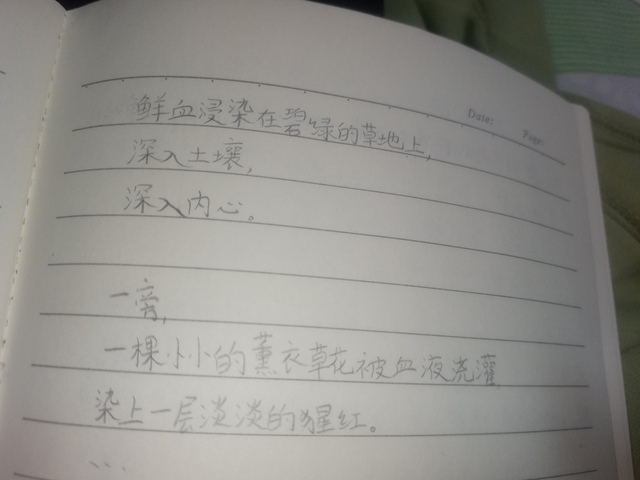 Date: Page:
鲜血浸染在碧绿的草地上,
深入土壤,
深入内心。
一旁,
一棵小小的薰衣草花被血液浇灌,
染上一层淡淡的猩红。
...